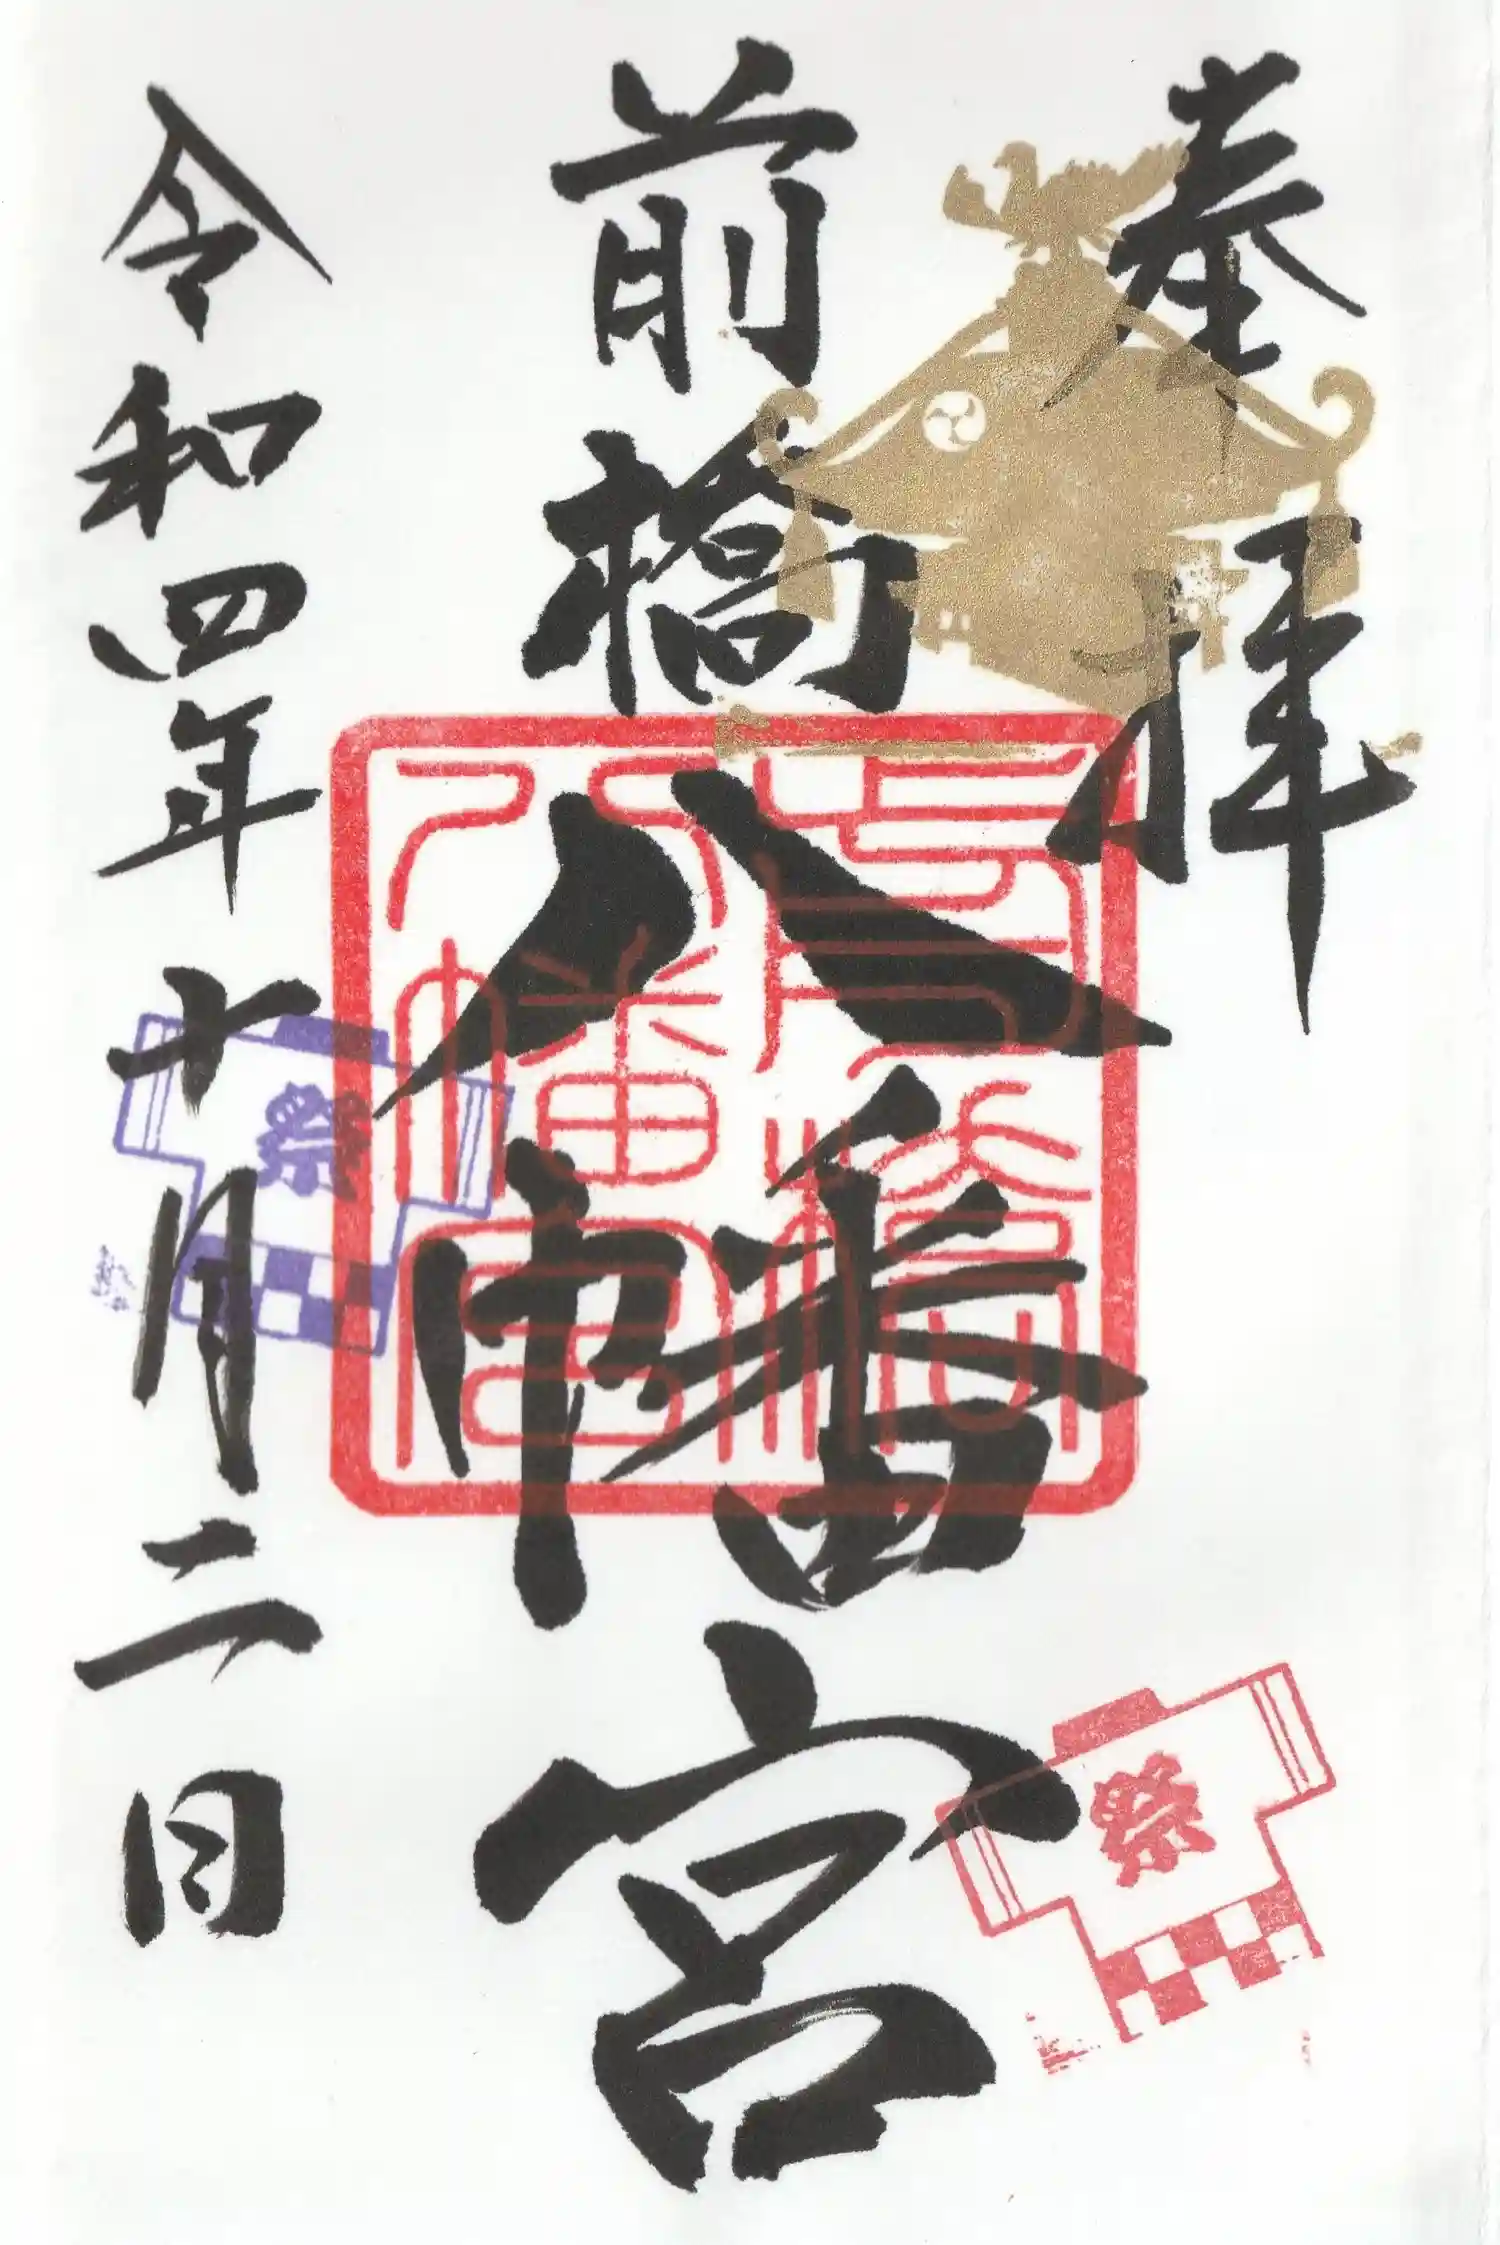 奉拝
前橋
八幡宮
前橋
八幡宮
令和四年十月二日
祭
祭